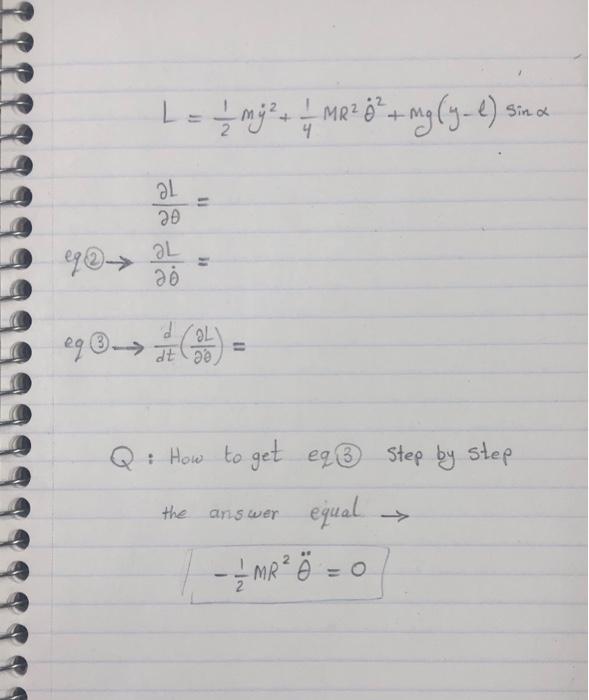 L = ½ mẏ² + ¼ MR² θ̇² + mg(y-l) sin α
∂L/∂θ =
eq② → ∂L/∂θ̇ =
eq③ → d/dt (∂L/∂θ̇) =
Q : How to get eq③ step by step
the answer equal →
-½ MR² θ̈ = 0